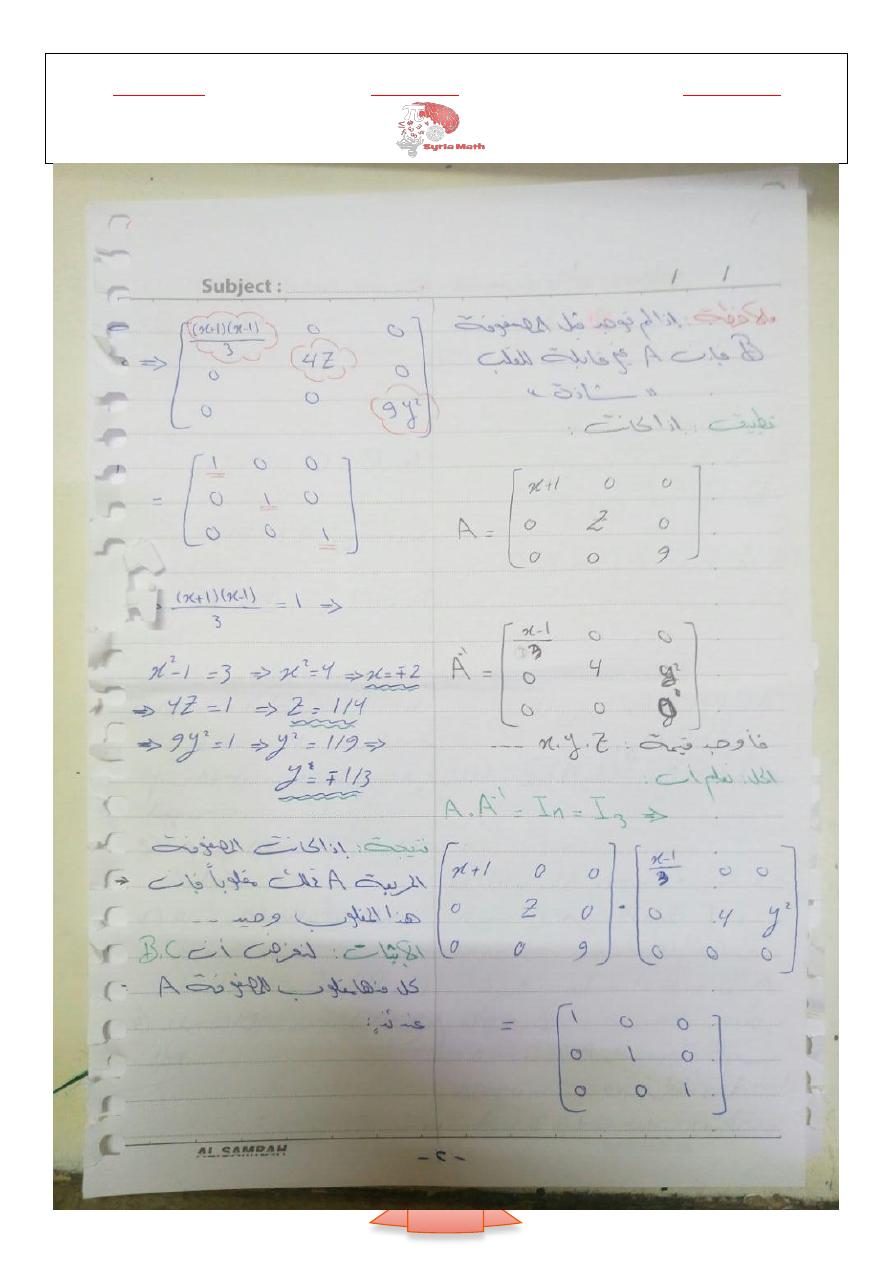 Syria Math
Subject :
/ /
ملاحظة: إذا لم توجد مثل المصفوفة
B فإن A غير قابلة للقلب
"شاذة"
تطبيق: إذا كانت:
A = [ x+1 0 0
0 Z 0
0 0 9 ]
A⁻¹ = [ x-1/3 0 0
0 4 y²
0 0 0 ]
فأوجد قيمة: x.y.Z ---
الحل: نعلم أن:
A.A⁻¹ = In = I3 ⇒
[ x+1 0 0
0 Z 0
0 0 9 ] · [ x-1/3 0 0
0 4 y²
0 0 0 ]
= [ 1 0 0
0 1 0
0 0 1 ]
⇒ [ (x+1)(x-1)/3 0 0
0 4Z 0
0 0 9y² ]
= [ 1 0 0
0 1 0
0 0 1 ]
(x+1)(x-1)/3 = 1 ⇒
x²-1 = 3 ⇒ x²=4 ⇒ x=∓2
⇒ 4Z=1 ⇒ Z = 1/4
⇒ 9y²=1 ⇒ y² = 1/9 ⇒
y = ∓1/3
نتيجة: إذا كانت المصفوفة
المربعة A تملك مقلوباً فإن
هذا المقلوب وحيد --
الإثبات: لنفرض أن B.C
كل منهما مقلوب للمصفوفة A
عندئذٍ:
AL.SAMRAH
-٢-